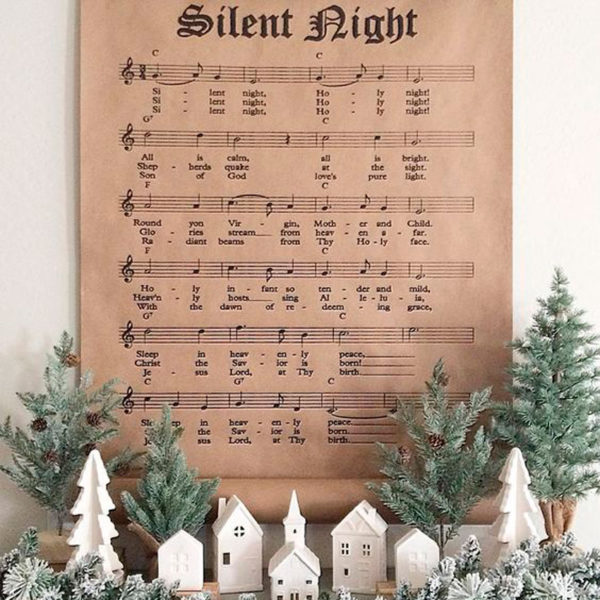 Silent Night
C C
Si - lent night, Ho - ly night!
Si - lent night, Ho - ly night!
Si - lent night, Ho - ly night!
G7 C
All is calm, all is bright.
Shep - herds quake at the sight.
Son of God love's pure light.
F C
Round yon Vir - gin, Moth - er and Child.
Glo - ries stream from heav - en a - far.
Ra - diant beams from Thy Ho - ly face.
F C
Ho - ly in - fant so ten - der and mild,
Heav'n - ly hosts sing Al - le - lu - ia,
With the dawn of re - deem - ing grace,
G7 C
Sleep in heav - en - ly peace,
Christ the Sav - ior is born!
Je - sus Lord, at Thy birth.
C G7 C
in heav - en - ly peace.
the Sav - ior is born.
sus Lord, at Thy birth.